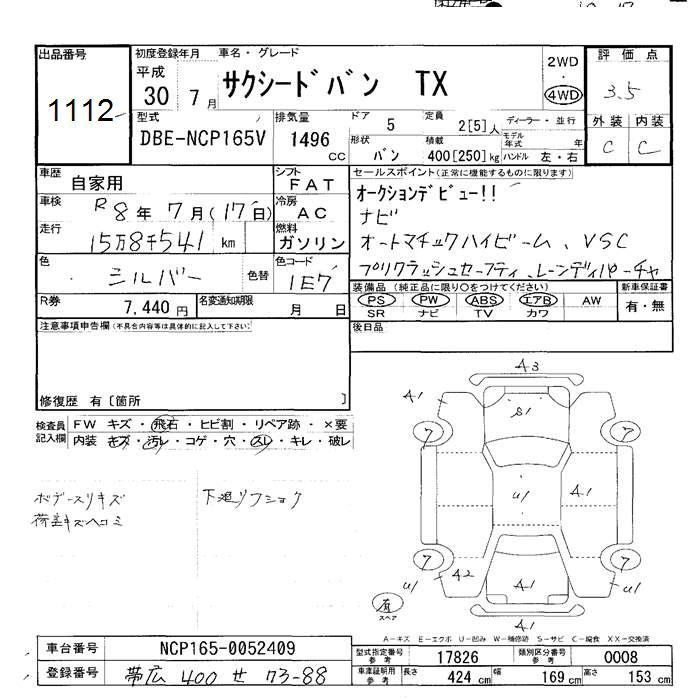 出品番号
1112
初度登録年月
平成
30 7月
車名・グレード
サクシードバン TX
2WD
・
4WD
評価点
3.5
外装 内装
C C
型式
DBE-NCP165V
排気量
1496 cc
ドア
5
定員
2[5]人
形状
バン
積載
400[250]kg
ディーラー・並行
モデル年式 年
ハンドル 左・右
車歴
自家用
シフト
FAT
車検
R8年7月(17日)
冷房
AC
走行
15万8千541 km
燃料
ガソリン
色
シルバー
色替
色コード
1E7
R券
7,440円
名変通知期限
月 日
セールスポイント(正常に機能するものに限ります)
オークションデビュー!!
ナビ
オートマチックハイビーム、VSC
プリクラッシュセーフティ、レーンディパーチャ
装備品(純正品に限り○をつけてください)
PS PW ABS エアB AW
SR ナビ TV カワ
新車保証書
有・無
注意事項申告欄(不具合内容等は具体的に記入して下さい)
後日品
修復歴 有〔箇所 〕
検査員
記入欄
FW キズ・飛石・ヒビ割・リペア跡・×要
内装 キズ・汚レ・コゲ・穴・スレ・キレ・破レ
ボデースリキズ
荷室キズヘコミ
下廻リフショク
A3
A1
S1
7
7
U1
A1
7
7
A2
U1
A1
U1
有
スペア
A1
A-キズ E-エクボ U-凹み W-補修跡 S-サビ C-腐食 XX-交換済
車台番号
NCP165-0052409
登録番号
帯広 400 せ 73-88
型式指定番号
参考
17826
類別区分番号
参考
0008
車庫証明用
参考
長さ
424 cm
幅
169 cm
高さ
153 cm